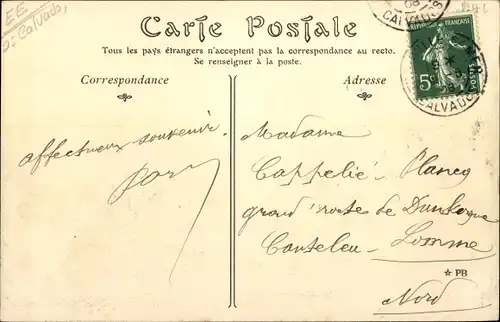 EE
Calvados
Carte Postale
Tous les pays étrangers n'acceptent pas la correspondance au recto.
Se renseigner à la poste.
Correspondance
Adresse
RÉPUBLIQUE FRANÇAISE
5c
POSTES
CALVADOS
CALVADOS
affectueux souvenir
Madame
Cappelié-Plancq
grand'route de Dunkerque
Canteleu-Lomme
★ PB
Nord